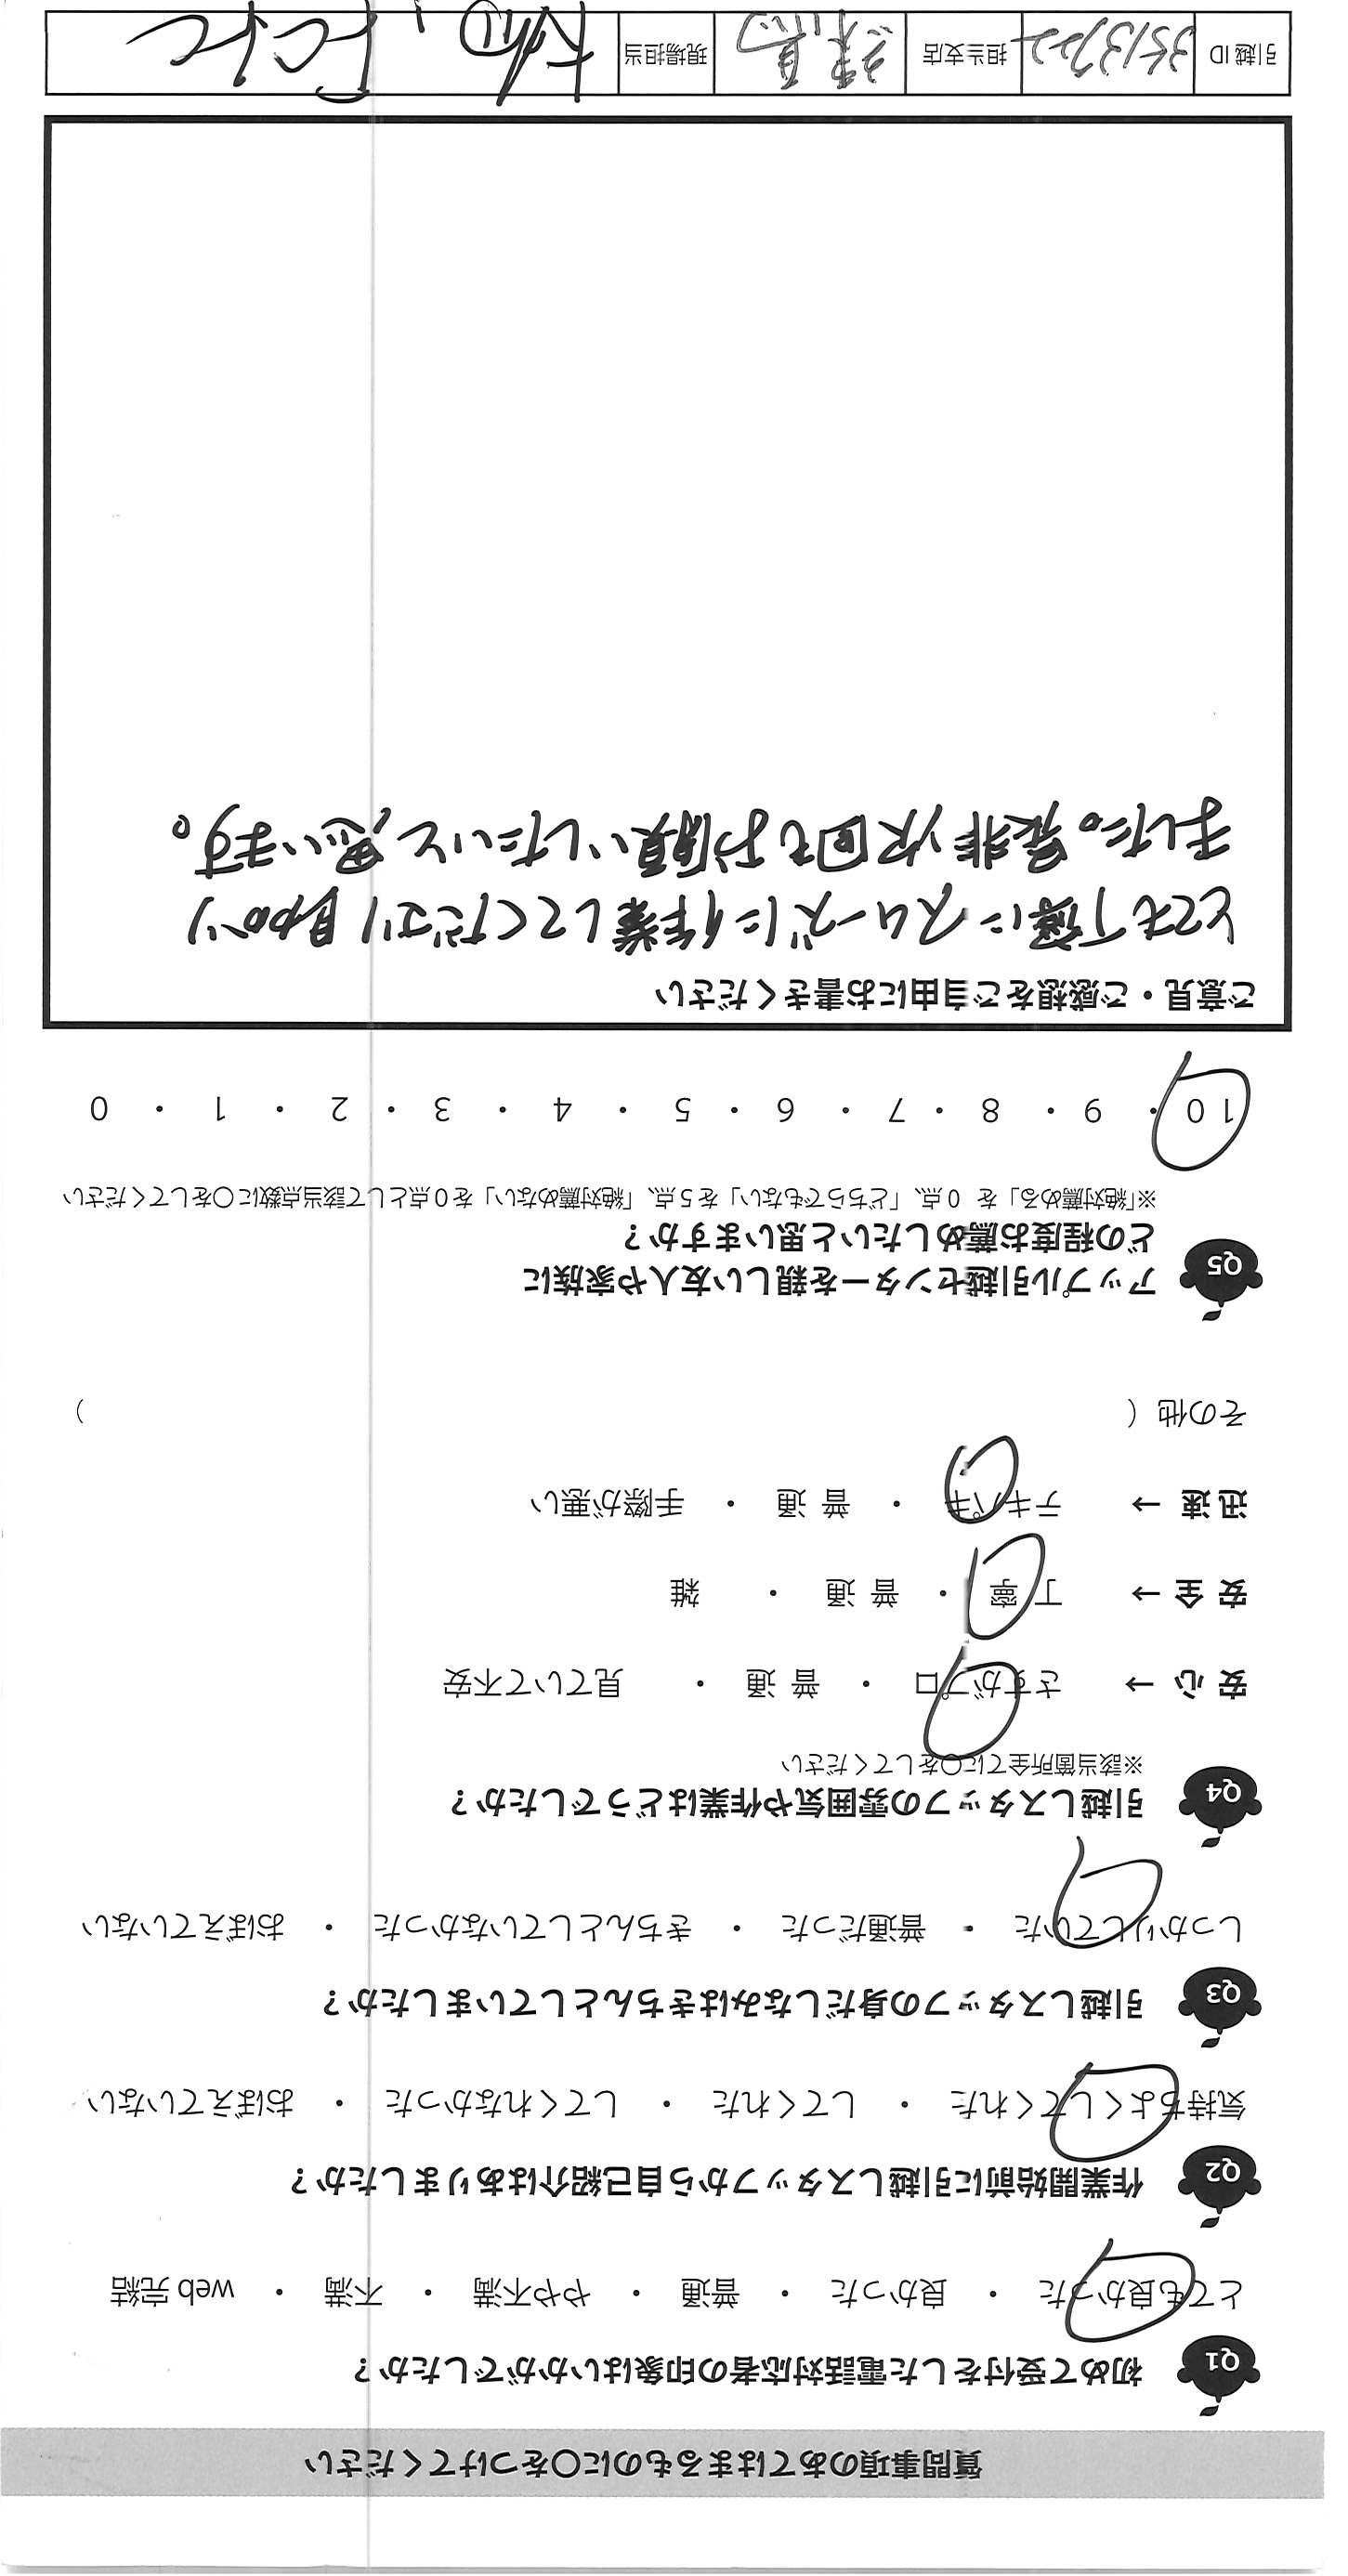 質問事項のあてはまるものに〇をつけてください
Q1 初めて受付をした電話対応者の印象はいかがでしたか？
とても良かった ・ 良かった ・ 普通 ・ やや不満 ・ 不満 ・ web 完結
Q2 作業開始前に引越しスタッフから自己紹介はありましたか？
気持ちよくしてくれた ・ してくれた ・ してくれなかった ・ おぼえていない
Q3 引越しスタッフの身だしなみはきちんとしていましたか？
しっかりしていた ・ 普通だった ・ きちんとしていなかった ・ おぼえていない
Q4 引越しスタッフの雰囲気や作業はどうでしたか？
※該当箇所全てに〇をしてください
安心→ さすがプロ ・ 普通 ・ 見ていて不安
安全→ 丁寧 ・ 普通 ・ 雑
迅速→ テキパキ ・ 普通 ・ 手際が悪い
その他（ ）
Q5 アップル引越センターを親しい友人や家族に
どの程度お薦めしたいと思いますか？
※「絶対薦める」を 0点、「どちらでもない」を5点、「絶対薦めない」を0点として該当点数に〇をしてください
10 ・ 9 ・ 8 ・ 7 ・ 6 ・ 5 ・ 4 ・ 3 ・ 2 ・ 1 ・ 0
ご意見・ご感想をご自由にお書きください
とても丁寧にスムーズに作業してくださり助かり
ました。是非次回もお願いしたいと思います。
引越ID 3513722 担当支店 練馬 現場担当